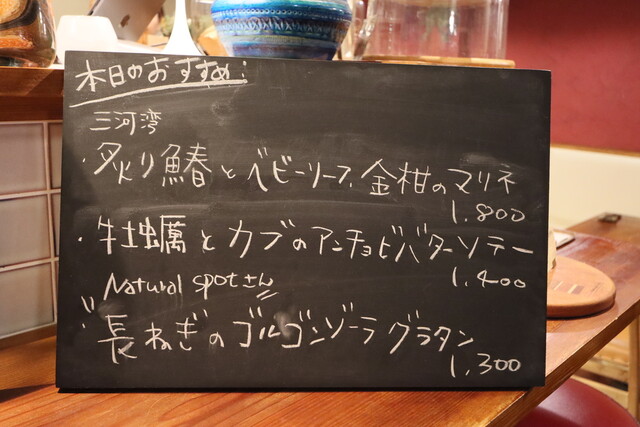 本日のおすすめ:
三河湾
・炙り鰆とベビーリーフ、金柑のマリネ
1,800
・牡蠣とカブのアンチョビバターソテー
1,400
Natural spotさん
〃長ねぎのゴルゴンゾーラグラタン
1,300